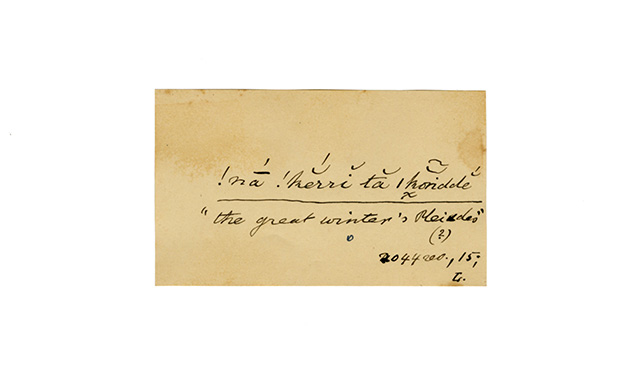 !nā́ !kĕ́rrĭ tă !kõ̆íddĕ́
"the great winter's Pleiades"
(?)
2044 rev., 15;
L.